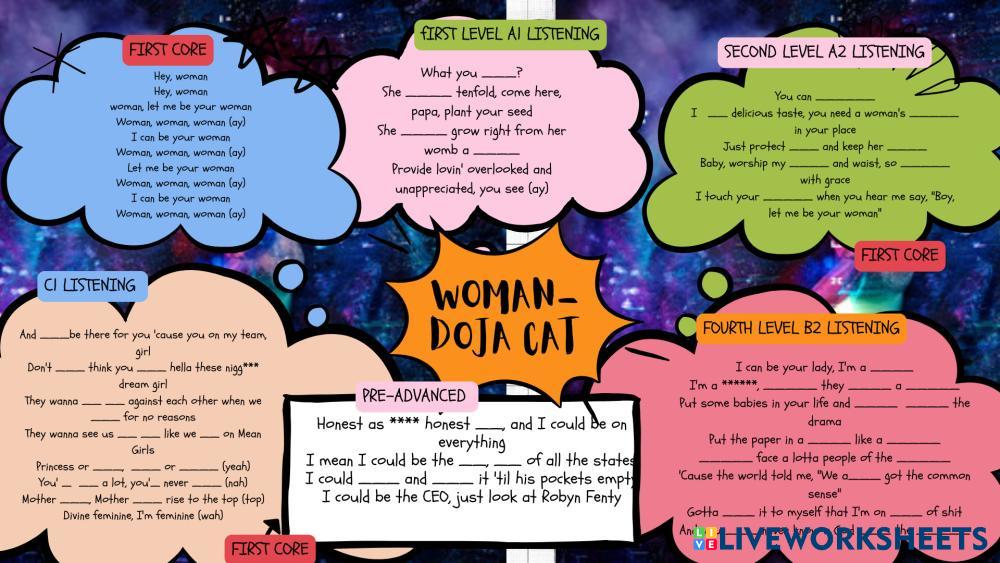 FIRST CORE
Hey, woman
Hey, woman
woman, let me be your woman
Woman, woman, woman (ay)
I can be your woman
Woman, woman, woman (ay)
Let me be your woman
Woman, woman, woman (ay)
I can be your woman
Woman, woman, woman (ay)
fIRST LEVEL A1 LISTENING
What you _____?
She _______ tenfold, come here,
papa, plant your seed
She _______ grow right from her
womb a _______
Provide lovin' overlooked and
unappreciated, you see (ay)
SECOND LEVEL A2 LISTENING
You can _________
I ___ delicious taste, you need a woman's ________
in your place
Just protect _____ and keep her ______
Baby, worship my ______ and waist, so ________
with grace
I touch your ________ when you hear me say, "Boy,
let me be your woman"
FIRST CORE
WOMAN-
DOJA CAT
C1 LISTENING
And _____be there for you 'cause you on my team,
girl
Don't _____ think you _____ hella these nigg***
dream girl
They wanna ___ ___ against each other when we
_____ for no reasons
They wanna see us ___ ___ like we ___ on Mean
Girls
Princess or _____, _____ or _____ (yeah)
You' _ ___ a lot, you'__ never _____ (nah)
Mother _____, Mother _____ rise to the top (top)
Divine feminine, I'm feminine (wah)
FIRST CORE
PRE-ADVANCED
Honest as **** honest ___, and I could be on
everything
I mean I could be the ___, ___ of all the states
I could _____ and _____ it 'til his pockets empty
I could be the CEO, just look at Robyn Fenty
FOURTH LEVEL B2 LISTENING
I can be your lady, I'm a _______
I'm a ******, _________ they _______ a _________
Put some babies in your life and _______ _______ the
drama
Put the paper in a _______ like a _________
_________ face a lotta people of the _________
'Cause the world told me, "We a_____ got the common
sense"
Gotta _____ it to myself that I'm on _____ of shit
LIVEWORKSHEETS